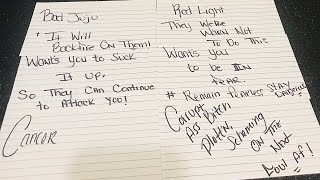 Bad Juju
It Will
Backfire On Them!
Wants You to Suck
It Up,
So They Can Continue
to Attack You!
Cancer
Red Light
They Were
Warn Not
To Do This
Wants You
to be IN
fear.
# Remain Fearless Stay
Corrupt
As Bitch
Plottin,
Scheming
On The
Next
Foul AF!